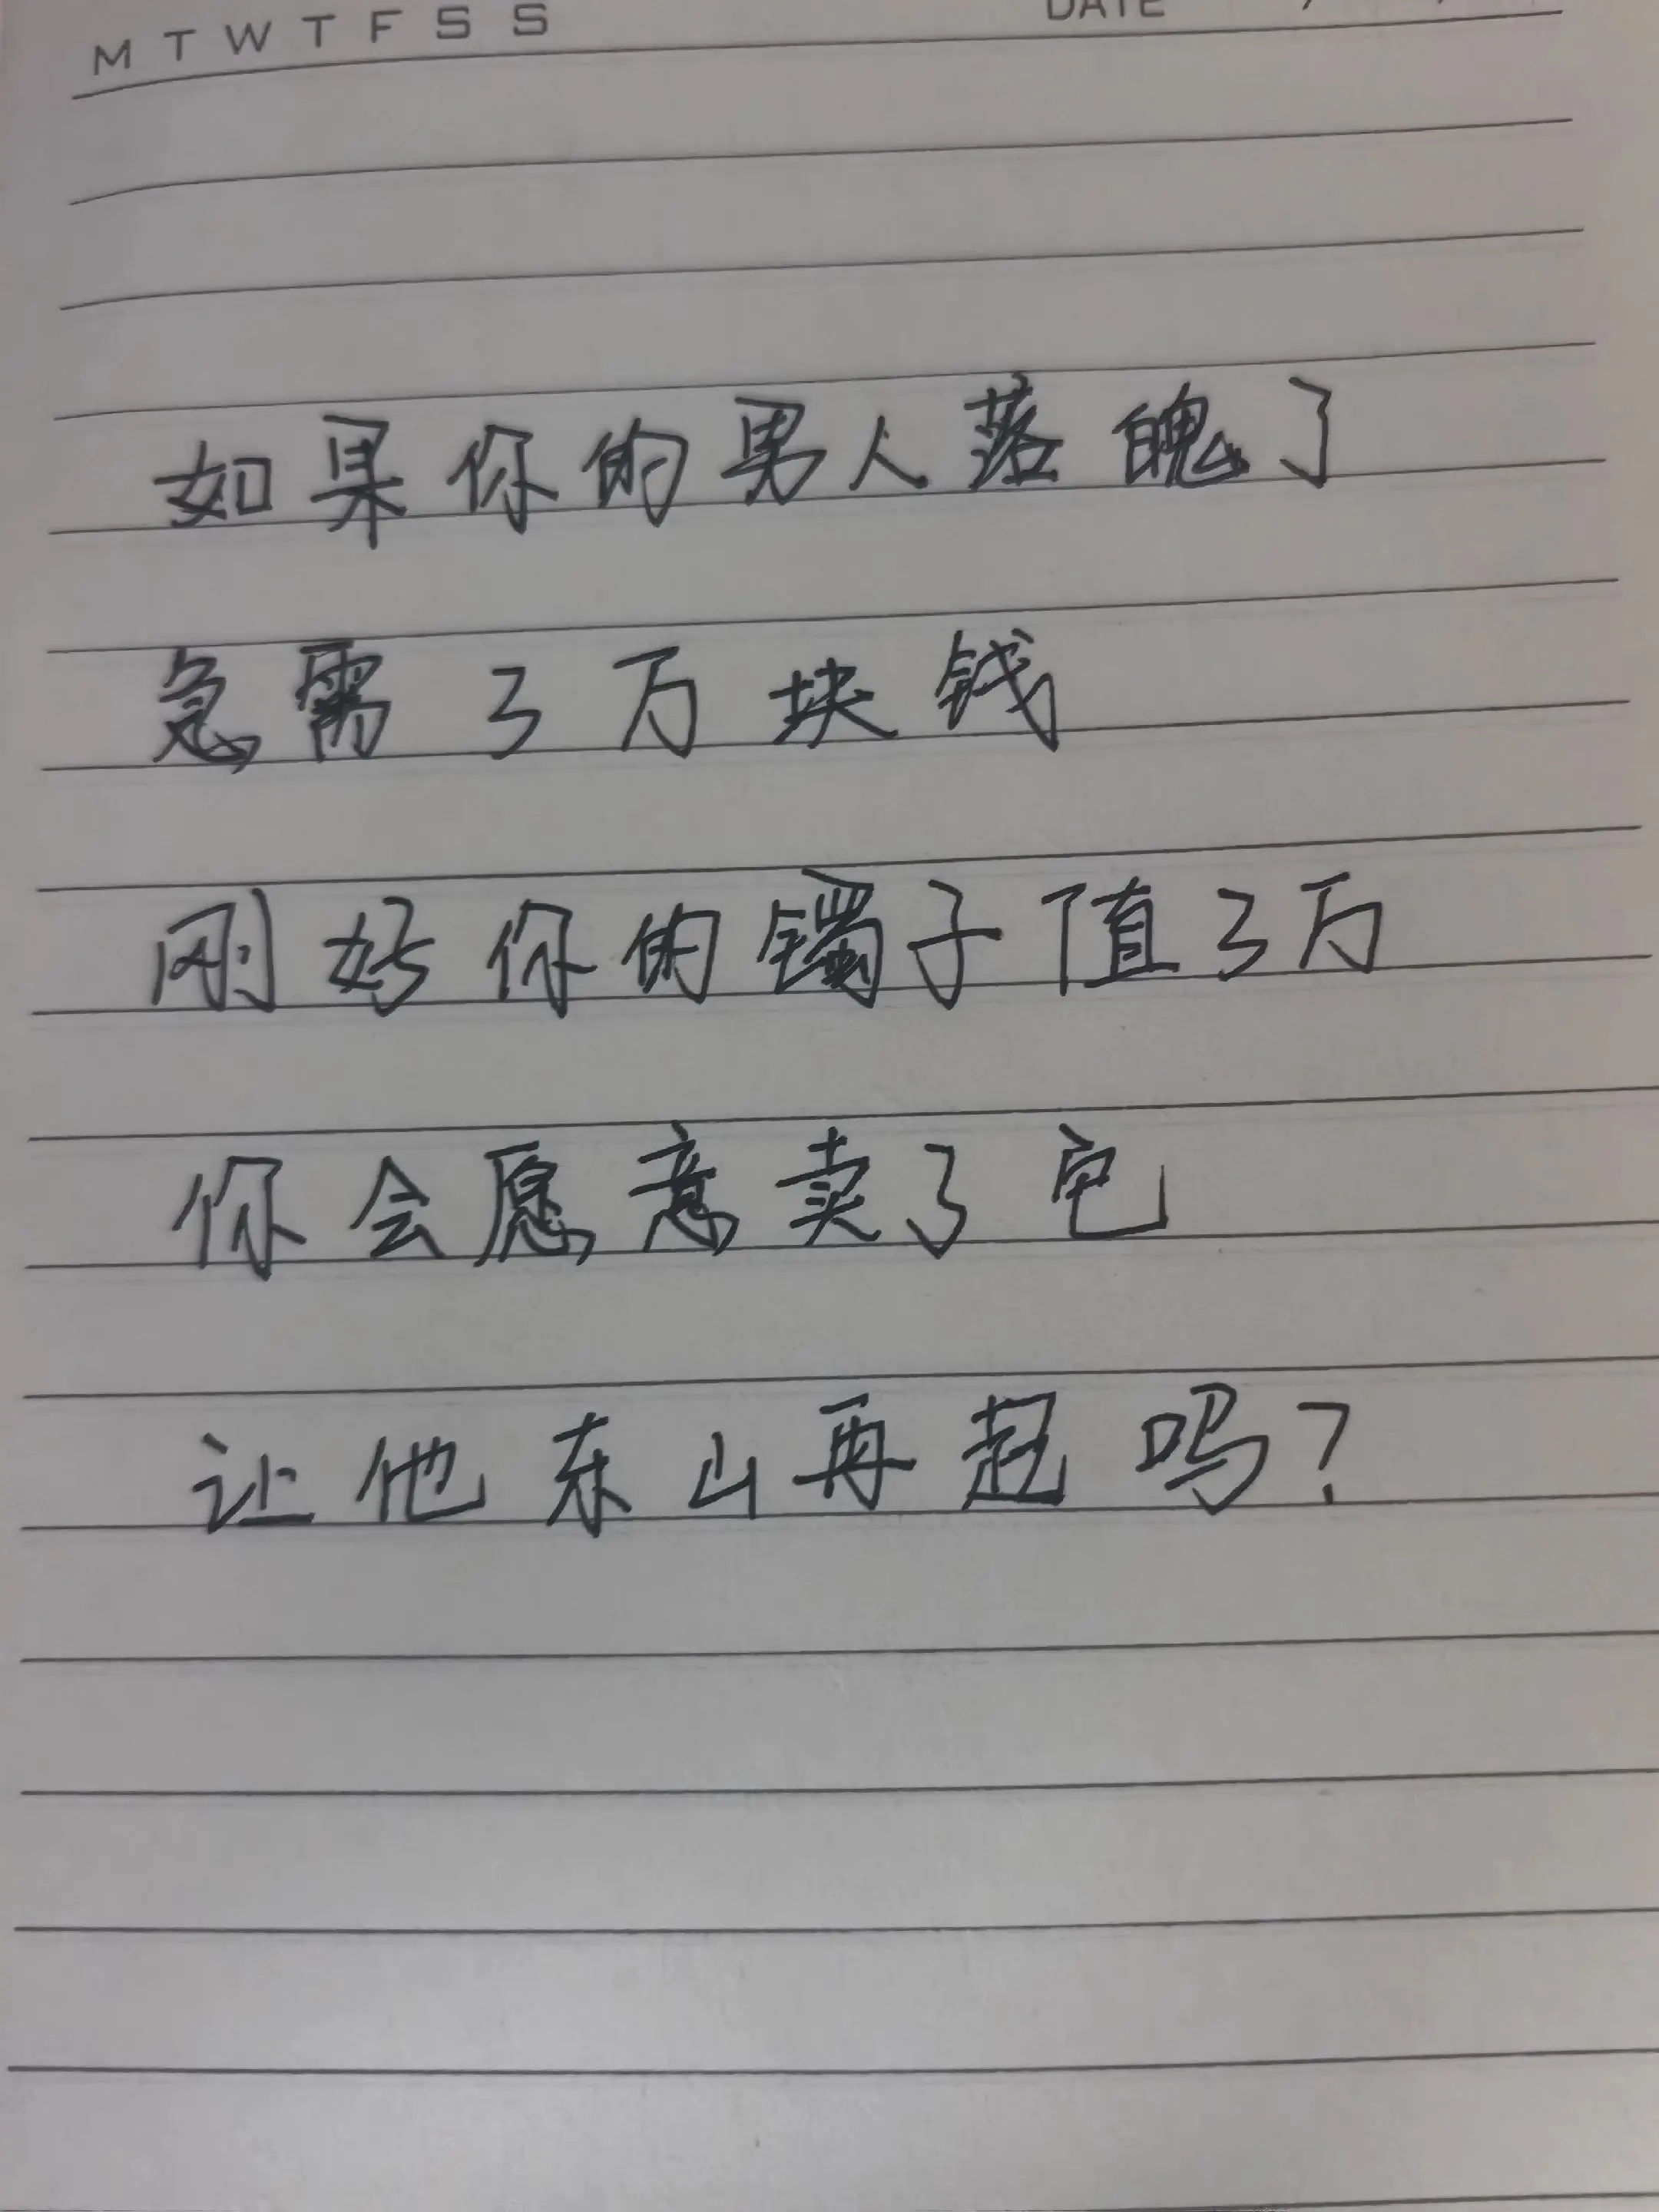 M T W T F S S
DATE
如果你的男人落魄了
急需3万块钱
刚好你的镯子值3万
你会愿意卖了它
让他东山再起吗?